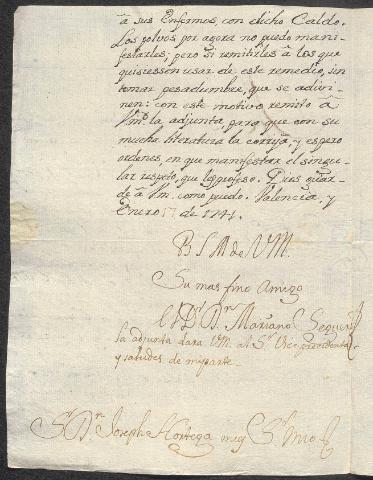 â sus Enfermos, con dicho Caldo.
Los polvos por agora no puedo mani-
festarles, pero si remitirles â los que
quisiesson usar de este remedio, sin
tomar pesadumbre, que se adivi-
nen: con este motivo remito â
Vm.d la adjunta, para que con su
mucha literatura la corrija, y espero
ordenes, en que manifestar el singu-
lar respeto, que les profeso. Dios guar-
de â Vm. como puedo. Valencia, y
Enero 17 de 1741.
B S M de VM.
Su mas fino Amigo
el D.r D.n Mariano Seguer
la adjunta dara VM. al S.r Vice presidente
y saludes de mi parte.
S.r D.n Joseph Hortega muy S.r Mio